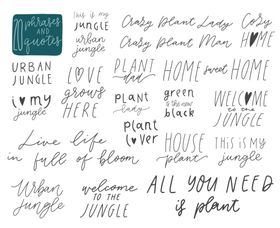 20 PHRASES
AND
QUOTES
This is my
JUNGLE
urban
JUNGLE
Crazy Plant Lady
Crazy Plant Man
Cozy
HOME
URBAN
JUNGLE
LOVE
grows
HERE
PLANT
dad
HOME sweet HOME
i ♥ my
jungle
plant
lady
green
is the new
black
WELCOME
to the
JUNGLE
plant
lover
Live life
in full of bloom
HOUSE
plant
THIS is MY
jungle
Urban
Jungle
welcome
to the
JUNGLE
ALL YOU NEED
is plant